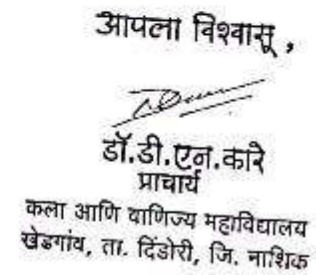 आपला विश्वासू ,
डॉ.डी.एन.कारे
प्राचार्य
कला आणि वाणिज्य महाविद्यालय
खेडगांव, ता. दिंडोरी, जि. नाशिक